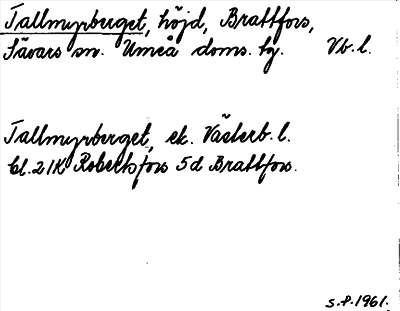 Tallmyrberget, höjd, Brattfors,
Sävars sn. Umeå doms. tg. Vb. l.
Tallmyrberget, ek. Västerb. l.
Bl. 21K Robertsfors 5d Brattfors.
s.f. 1961.